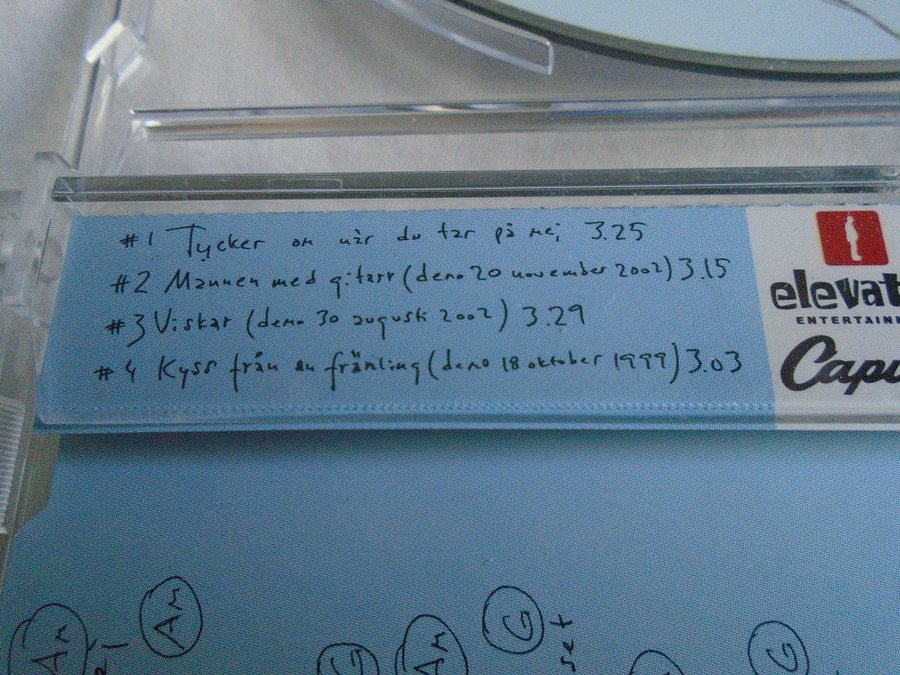 #1 Tycker om när du tar på mej 3.25
#2 Mannen med gitarr (demo 20 november 2002) 3.15
#3 Viskar (demo 30 augusti 2002) 3.29
#4 Kyss från en främling (demo 18 oktober 1999) 3.03
elevat
ENTERTAIN
Cap
Am
Am
G
Am
G
set
G